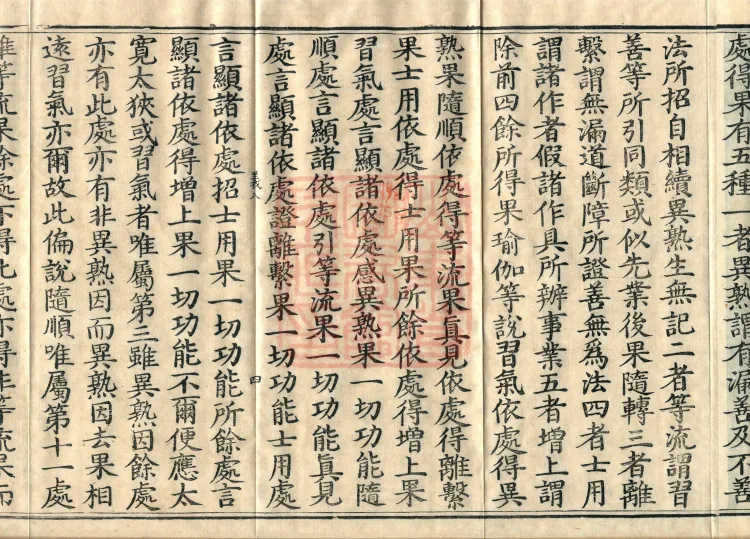 處得果有五種一者異熟謂有漏善及不善
法所招自相續異熟生無記二者等流謂習
善等所引同類或似先業後果隨轉三者離
繫謂無漏道斷障所證善無爲法四者士用
謂諸作者假諸作具所辦事業五者增上謂
除前四餘所得果瑜伽等說習氣依處得異
熟果隨順依處得等流果真見依處得離繫
果士用依處得士用果所餘依處得增上果
習氣處言顯諸依處感異熟果一切功能隨
順處言顯諸依處引等流果一切功能真見
處言顯諸依處證離繫果一切功能士用處
義八 四
言顯諸依處招士用果一切功能所餘處言
顯諸依處得增上果一切功能不爾便應太
寬太狹或習氣者唯屬第三雖異熟因餘處
亦有此處亦有非異熟因而異熟因去果相
遠習氣亦爾故此偏說隨順唯屬第十一處
雖等流果餘處亦得此處亦得非等流果而